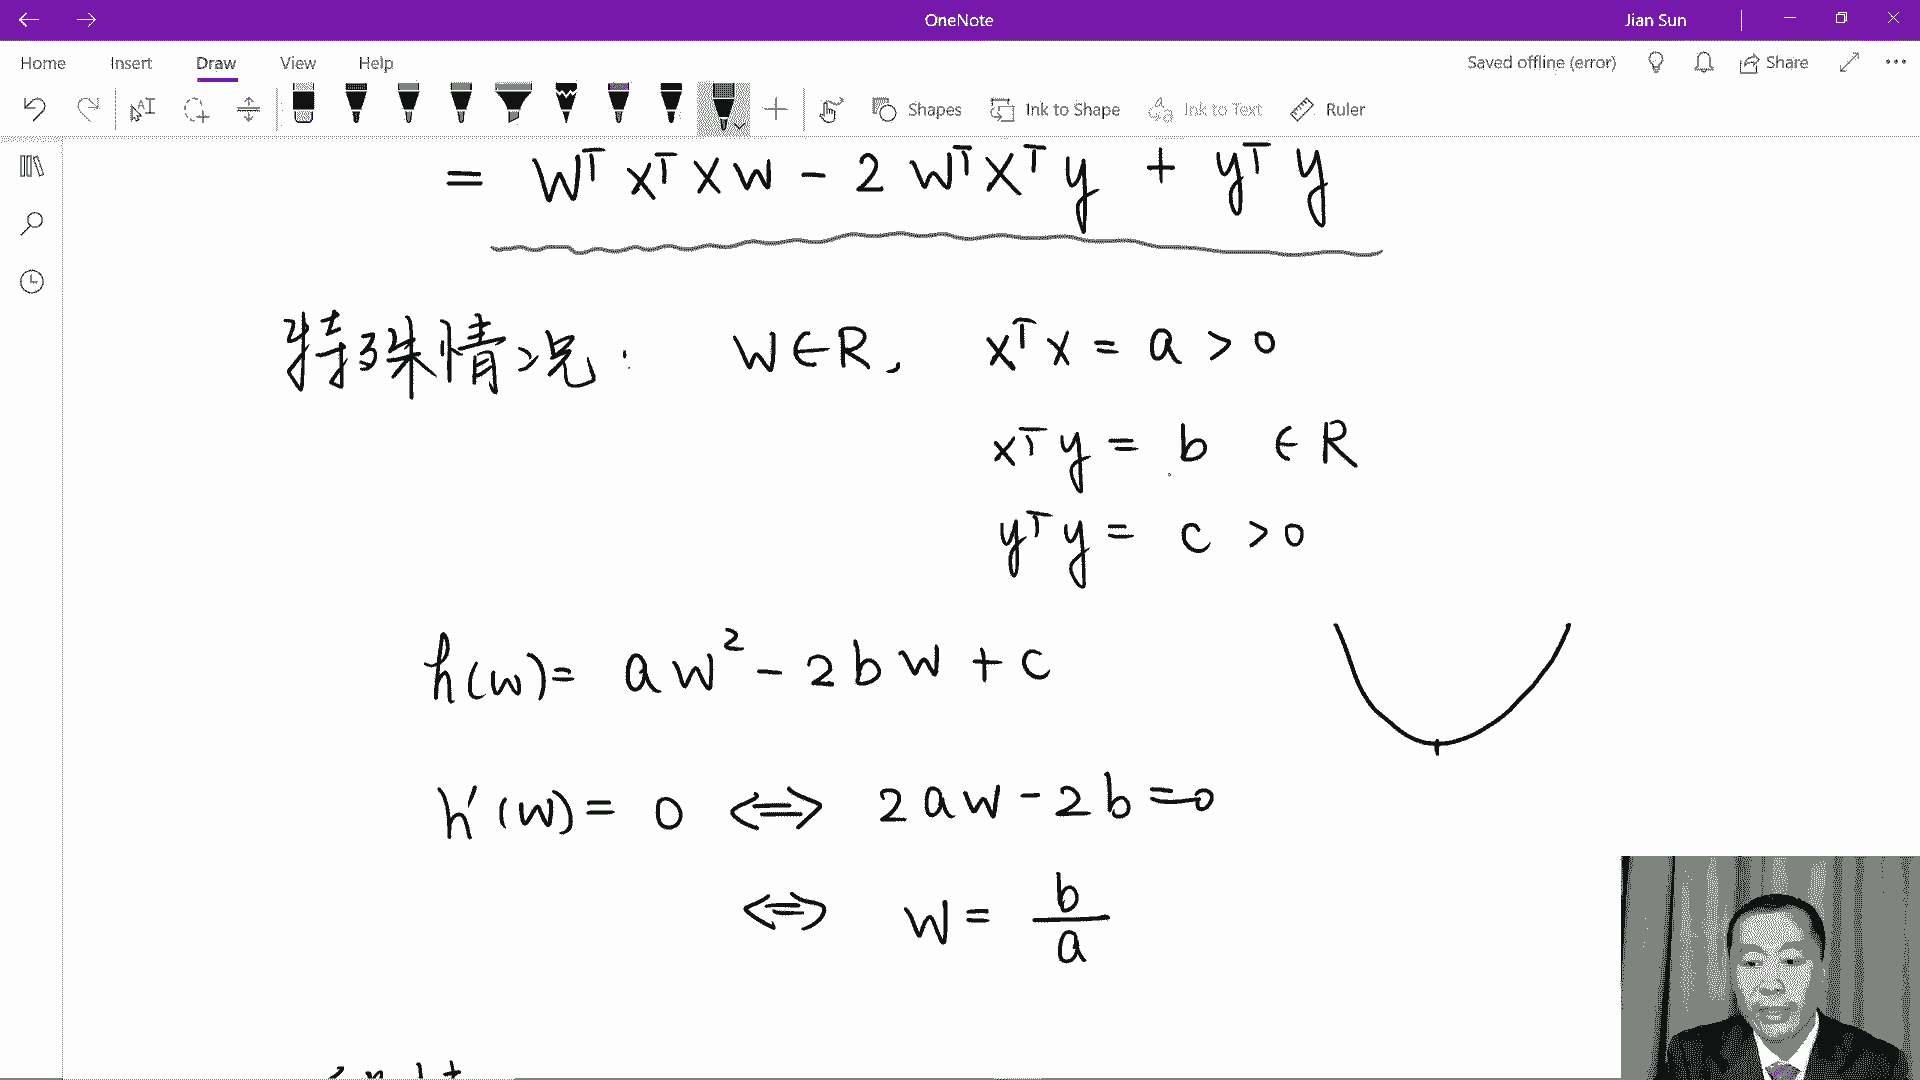 OneNote
Jian Sun
Home Insert Draw View Help
Saved offline (error) Share
Shapes Ink to Shape Ink to Text Ruler
= Wᵀ Xᵀ X W - 2 Wᵀ Xᵀ y + yᵀ y
特殊情况: W ∈ R, xᵀ x = a > 0
xᵀ y = b ∈ R
yᵀ y = c > 0
h(w) = a w² - 2 b w + c
h'(w) = 0 ⟺ 2 a w - 2 b = 0
⟺ w = b/a